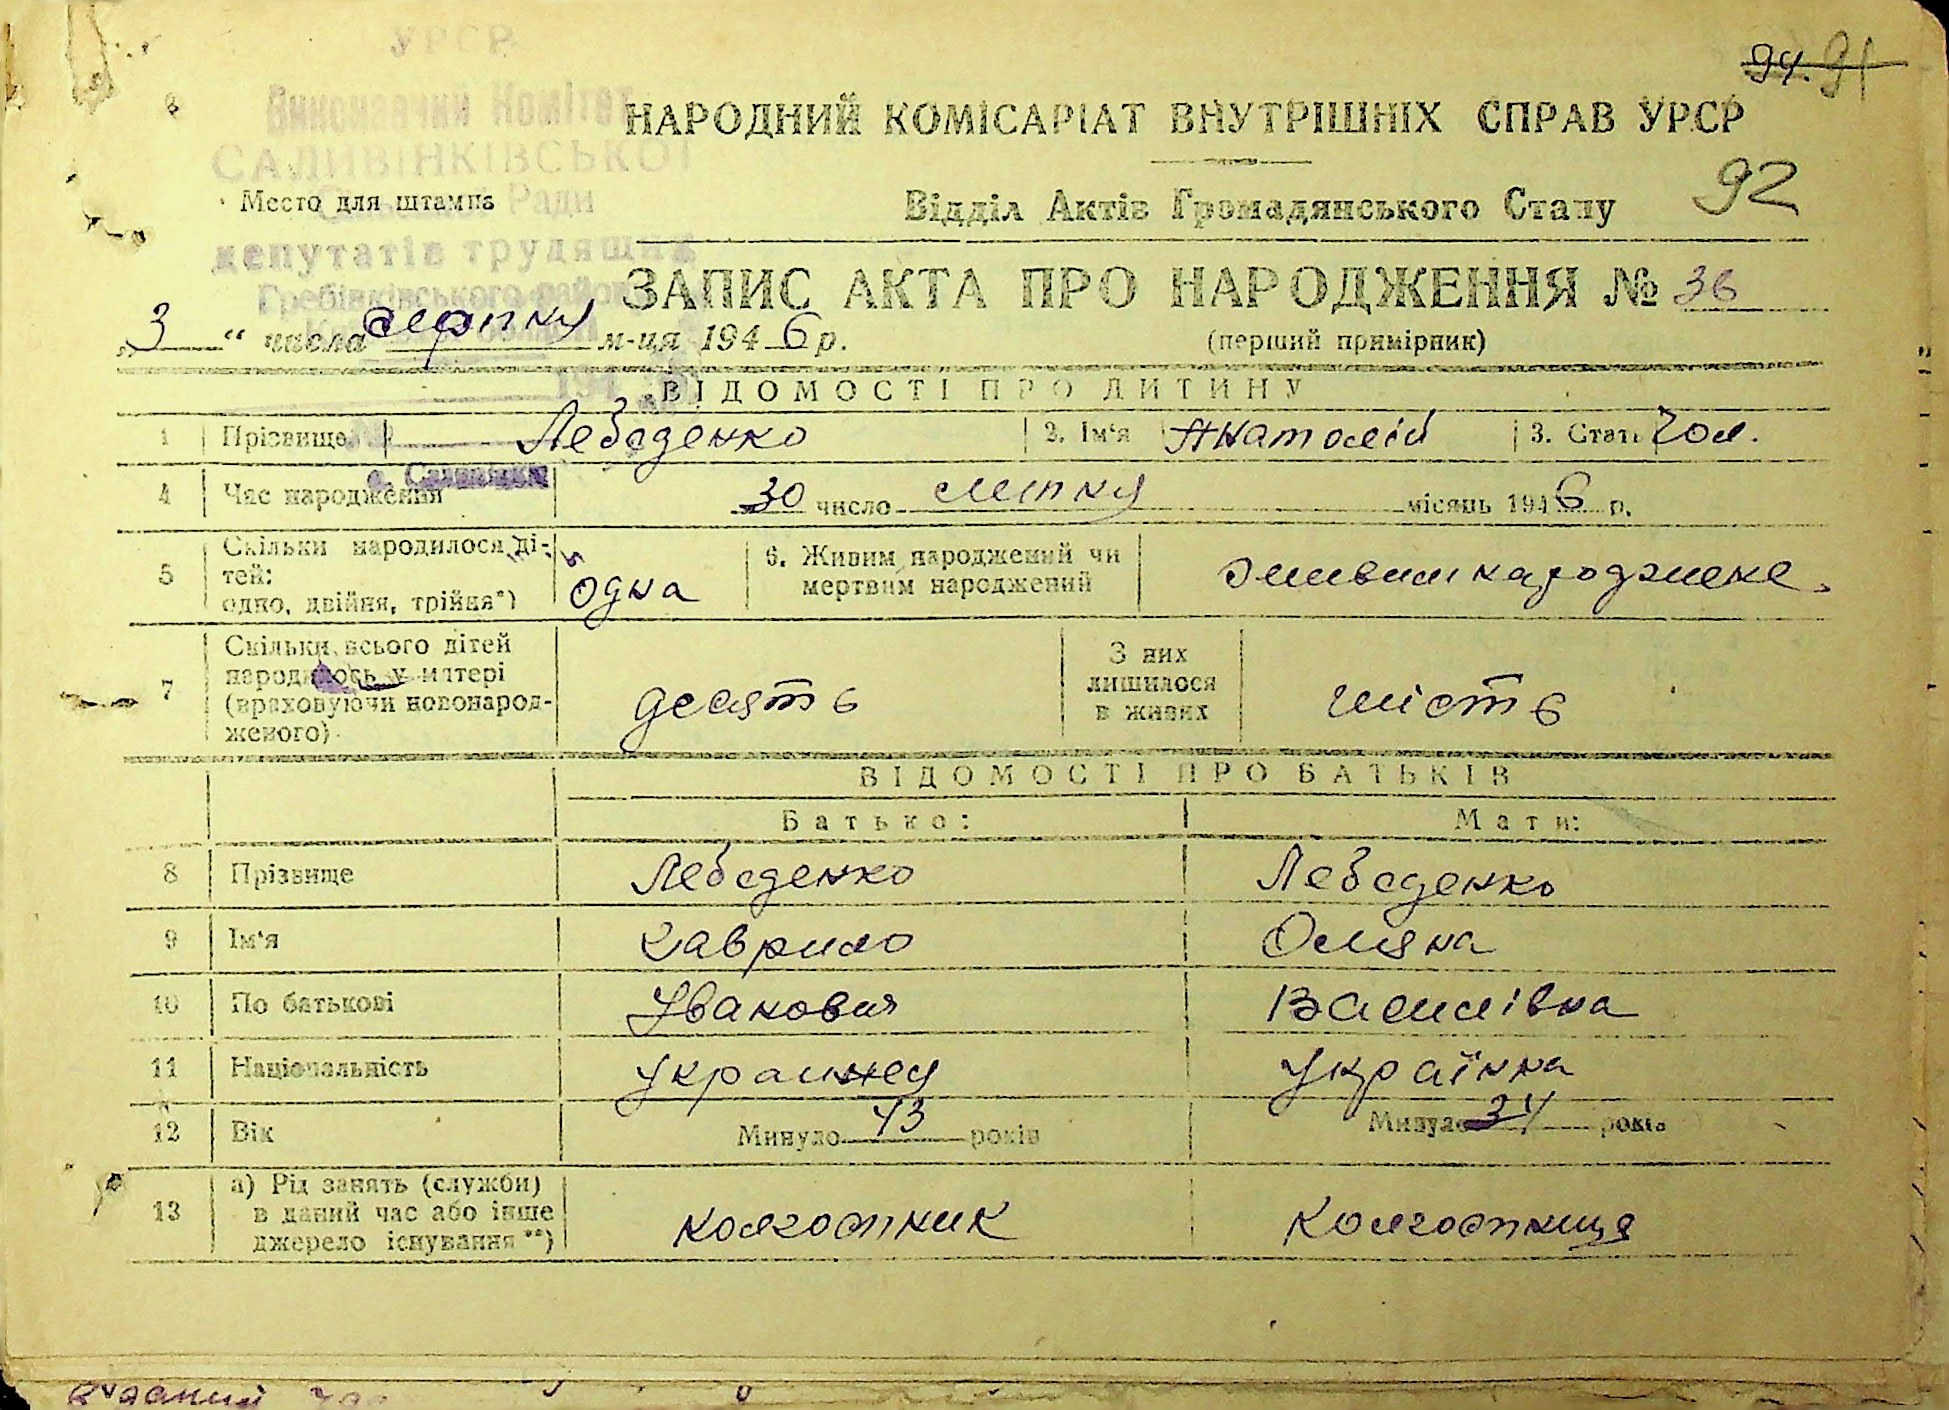 94. 91
УРСР
Виконавчий Комітет
НАРОДНИЙ КОМІСАРІАТ ВНУТРІШНІХ СПРАВ УРСР
САЛИВІНКІВСЬКОЇ
Ради
Место для штампа
Відділ Актів Громадянського Стану 92
депутатів трудящих
Гребінківського район
ЗАПИС АКТА ПРО НАРОДЖЕННЯ № 36
„3“ числа серпня м-ця 1946 р.
(перший примірник)
ВІДОМОСТІ ПРО ДИТИНУ
1 Прізвище Лебеденко 2. Ім'я Анатолій 3. Стать Чол.
с. Саливінки
4 Час народження 30 число липня місяць 1946 р.
5 Скільки народилося ді-
тей:
одно, двійня, трійня*) одна 6. Живим народжений чи
мертвим народжений живим народжене.
7 Скільки всього дітей
народилось у матері
(враховуючи новонарод-
женого) десять З них
лишилося
в живих шість
ВІДОМОСТІ ПРО БАТЬКІВ
Батько: Мати:
8 Прізвище Лебеденко Лебеденко
9 Ім'я Гаврило Оляна
10 По батькові Іванович Василівна
11 Національність украинец Українка
12 Вік Минуло 43 років Минуло 34 років
13 а) Рід занять (служби)
в даний час або інше
джерело існування**) колгостник колгостниця